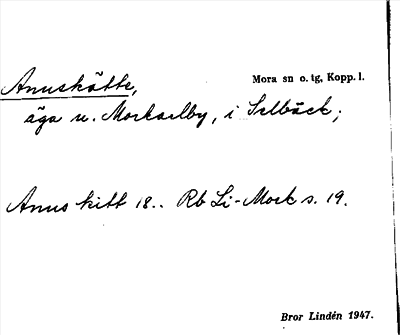 Anuskätte,
Mora sn o. tg, Kopp. l.
äga u. Morkarlby, i Selbäck;
Anus kitt 18.. Rb Li-Mork s. 19.
Bror Lindén 1947.